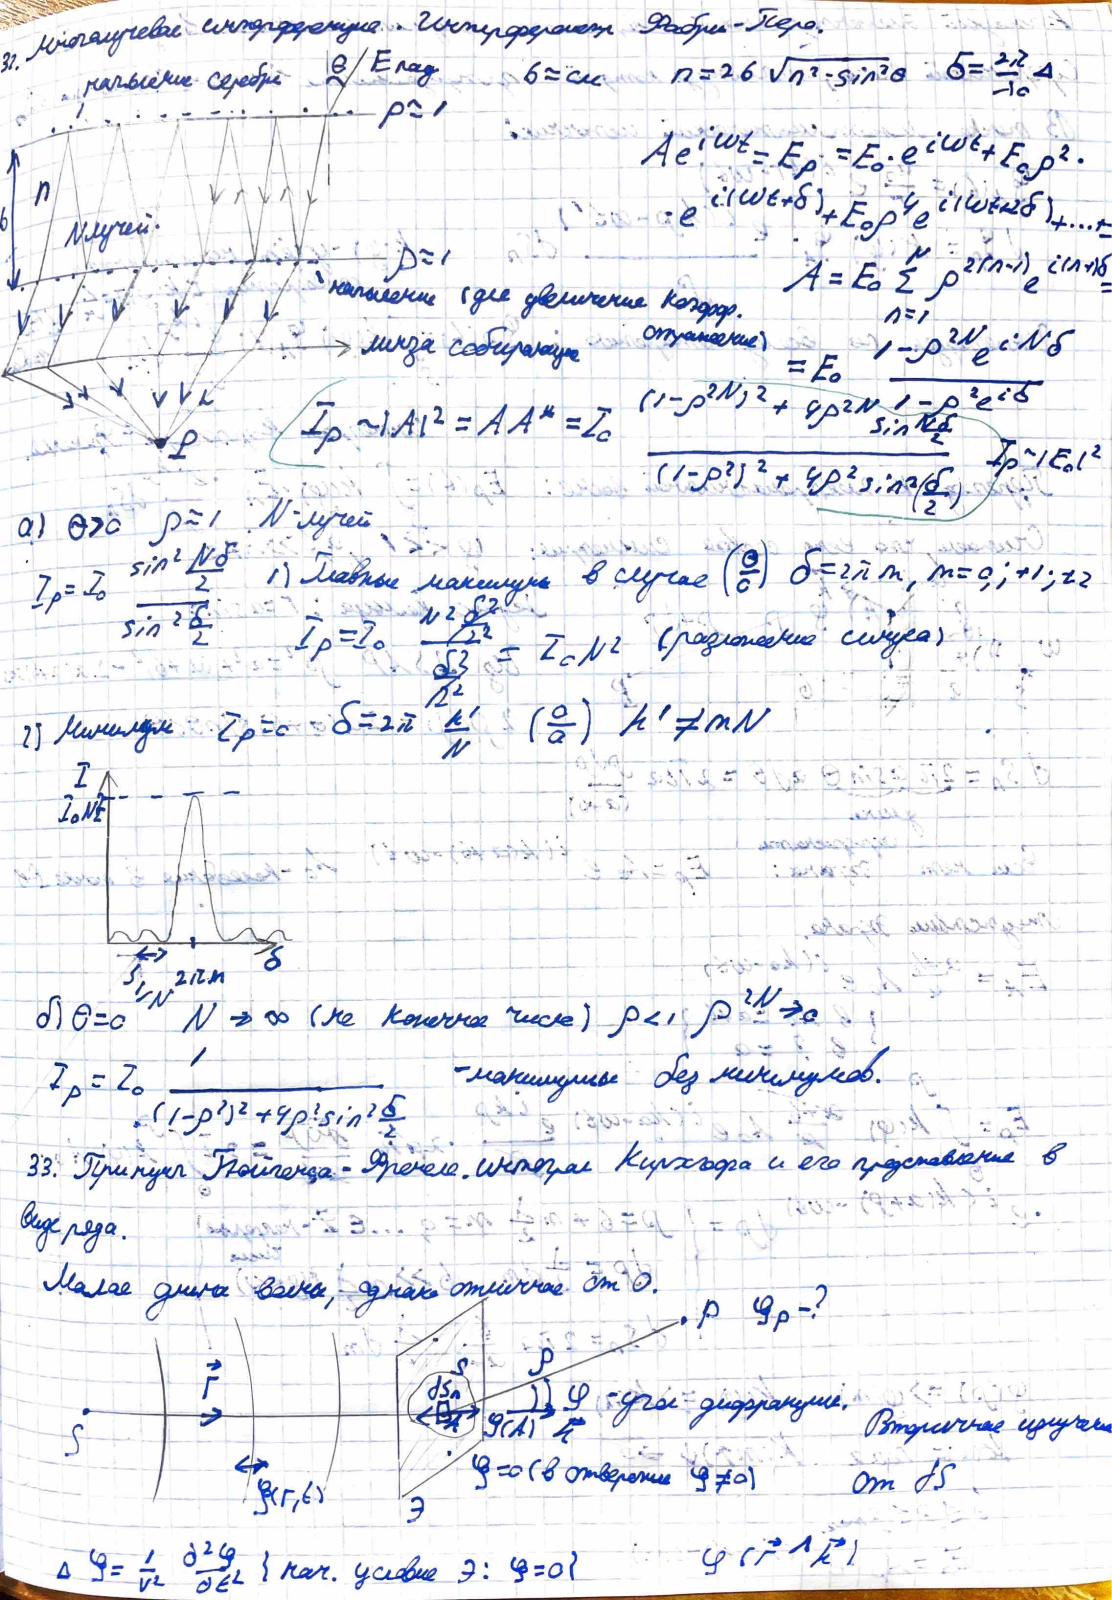 32. Многолучевая интерференция. Интерферометр Фабри-Перо.
напыление серебра θ Eпад b≈см n=2b√(n²-sin²θ) δ=2π/λ₀ Δ
ρ≈1
Ae^{iωt}=E_p=E₀·e^{iωt}+E₀ρ²·
·e^{i(ωt+δ)}+E₀ρ⁴e^{i(ωt+2δ)}+....=
b n N лучей.
ρ≈1
A=E₀ Σ_{n=1}^{N} ρ^{2(n-1)} e^{i(n+1)δ}=
напыление (для увеличения коэфф. отражения)
линза собирающая
=E₀ (1-ρ^{2N}e^{iNδ})/(1-ρ²e^{iδ})
P
I_p~|A|²=AA*=I₀ ((1-ρ^{2N})²+4ρ^{2N} sin² Nδ/2)/((1-ρ²)²+4ρ² sin²(δ/2)) I_p~|E₀|²
а) θ>0 ρ≈1 N-лучей
I_p=I₀ (sin² Nδ/2)/(sin² δ/2) 1) Главные максимумы в случае (0/0) δ=2πm, m=0;+1;±2
I_p=I₀ (N² δ²/2²)/(δ²/2²) = I₀N² (разложение синуса)
2) Минимум I_p=0 - δ=2π k'/N (0/a) k'≠mN
I
I₀N²
1/N 2πm δ
б) θ=0 N→∞ (не конечное число) ρ<1, ρ^{2N}→0
I_p=I₀ 1/((1-ρ²)²+4ρ² sin² δ/2) -максимумы без минимумов.
33. Принцип Гюйгенса-Френеля. интеграл Кирхгофа и его представление в
виде ряда.
Малая длина волны, однако отличная от 0.
P φ_p-?
S r φ(r,t) S dS_n A φ(A) ρ n φ -угол дифракции.
Вторичное излучение
от dS
φ=0 (в отверстии φ≠0)
Э
Δφ=1/v² ∂²φ/∂t² { нач. условие Э: φ=0{ φ(r^n)